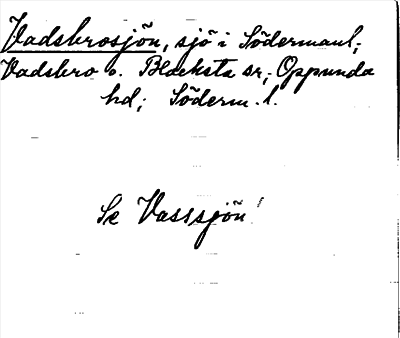 Vadsbrosjön, sjö i Södermanl.;
Vadsbro o. Blacksta sr, Oppunda
hd; Söderm. l.
Se Vasssjön!